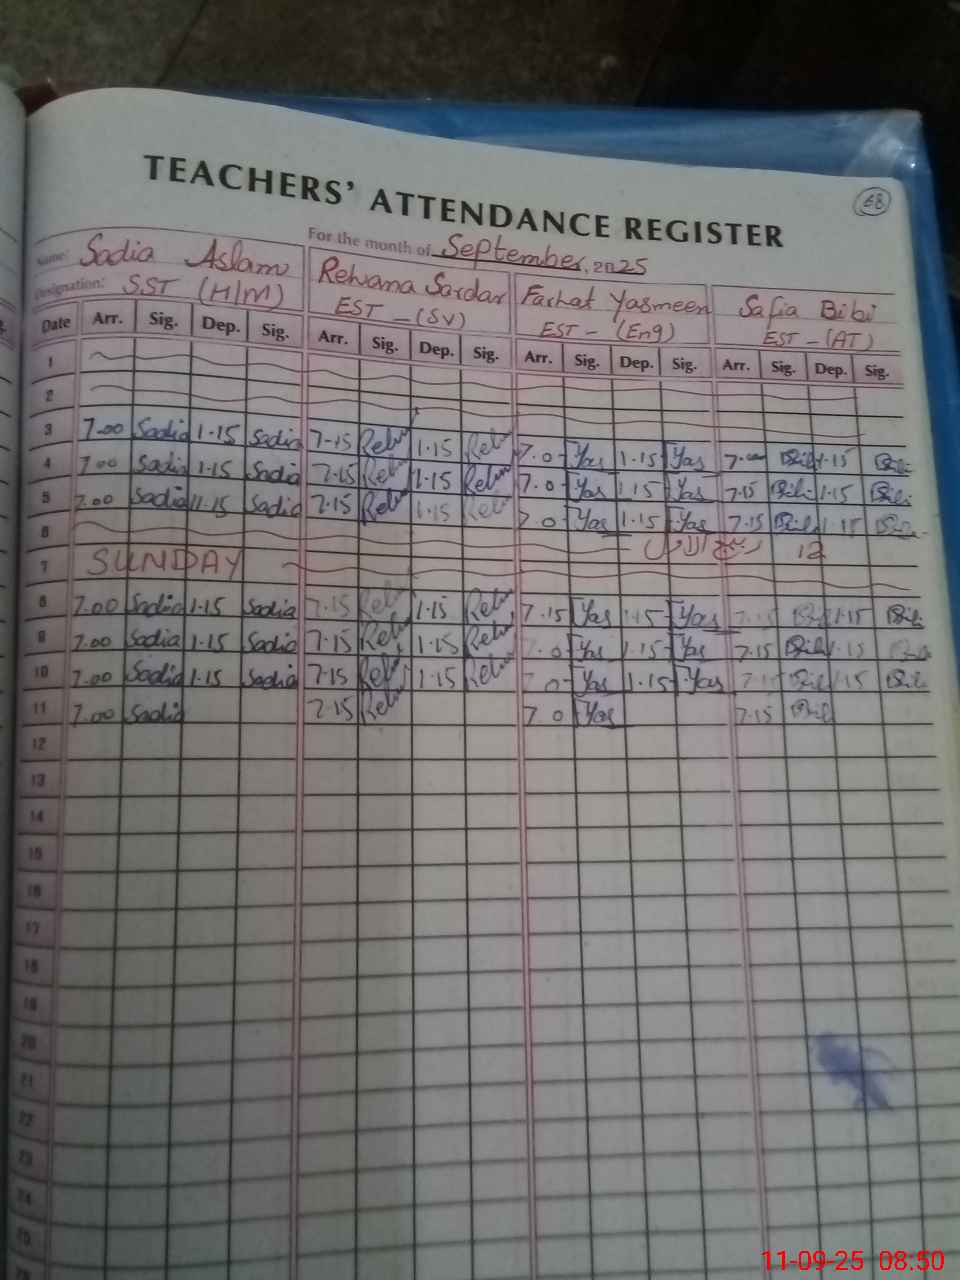 68
TEACHERS' ATTENDANCE REGISTER
For the month of September, 2025
Name: Sadia Aslam Rehana Sardar Farhat Yasmeen Safia Bibi
Designation: SST (H/M) EST - (SV) EST - (Eng) EST - (AT)
Date Arr. Sig. Dep. Sig. Arr. Sig. Dep. Sig. Arr. Sig. Dep. Sig. Arr. Sig. Dep. Sig.
1
2
3 7.00 Sadia 1.15 Sadia 7.15 1.15 7.0 Yas 1.15 Yas 7.00 Bibi 1.15 Bibi
4 7.00 Sadia 1.15 Sadia 7.15 1.15 7.0 Yas 1.15 Yas 7.15 Bibi 1.15 Bibi
5 7.00 Sadia 1.15 Sadia 7.15 1.15 7.0 Yas 1.15 Yas 7.15 Bibi 1.15 Bibi
6 12 ربیع الاول
7 SUNDAY
8 7.00 Sadia 1.15 Sadia 7.15 1.15 7.15 Yas 1.15 Yas 7.15 Bibi 1.15 Bibi
9 7.00 Sadia 1.15 Sadia 7.15 1.15 7.0 Yas 1.15 Yas 7.15 Bibi 1.15 Bibi
10 7.00 Sadia 1.15 Sadia 7.15 1.15 7.0 Yas 1.15 Yas 7.15 Bibi 1.15 Bibi
11 7.00 Sadia 7.15 7.0 Yas 7.15 Bibi
12
13
14
15
16
17
18
19
20
21
22
23
24
25
11-09-25 08.50